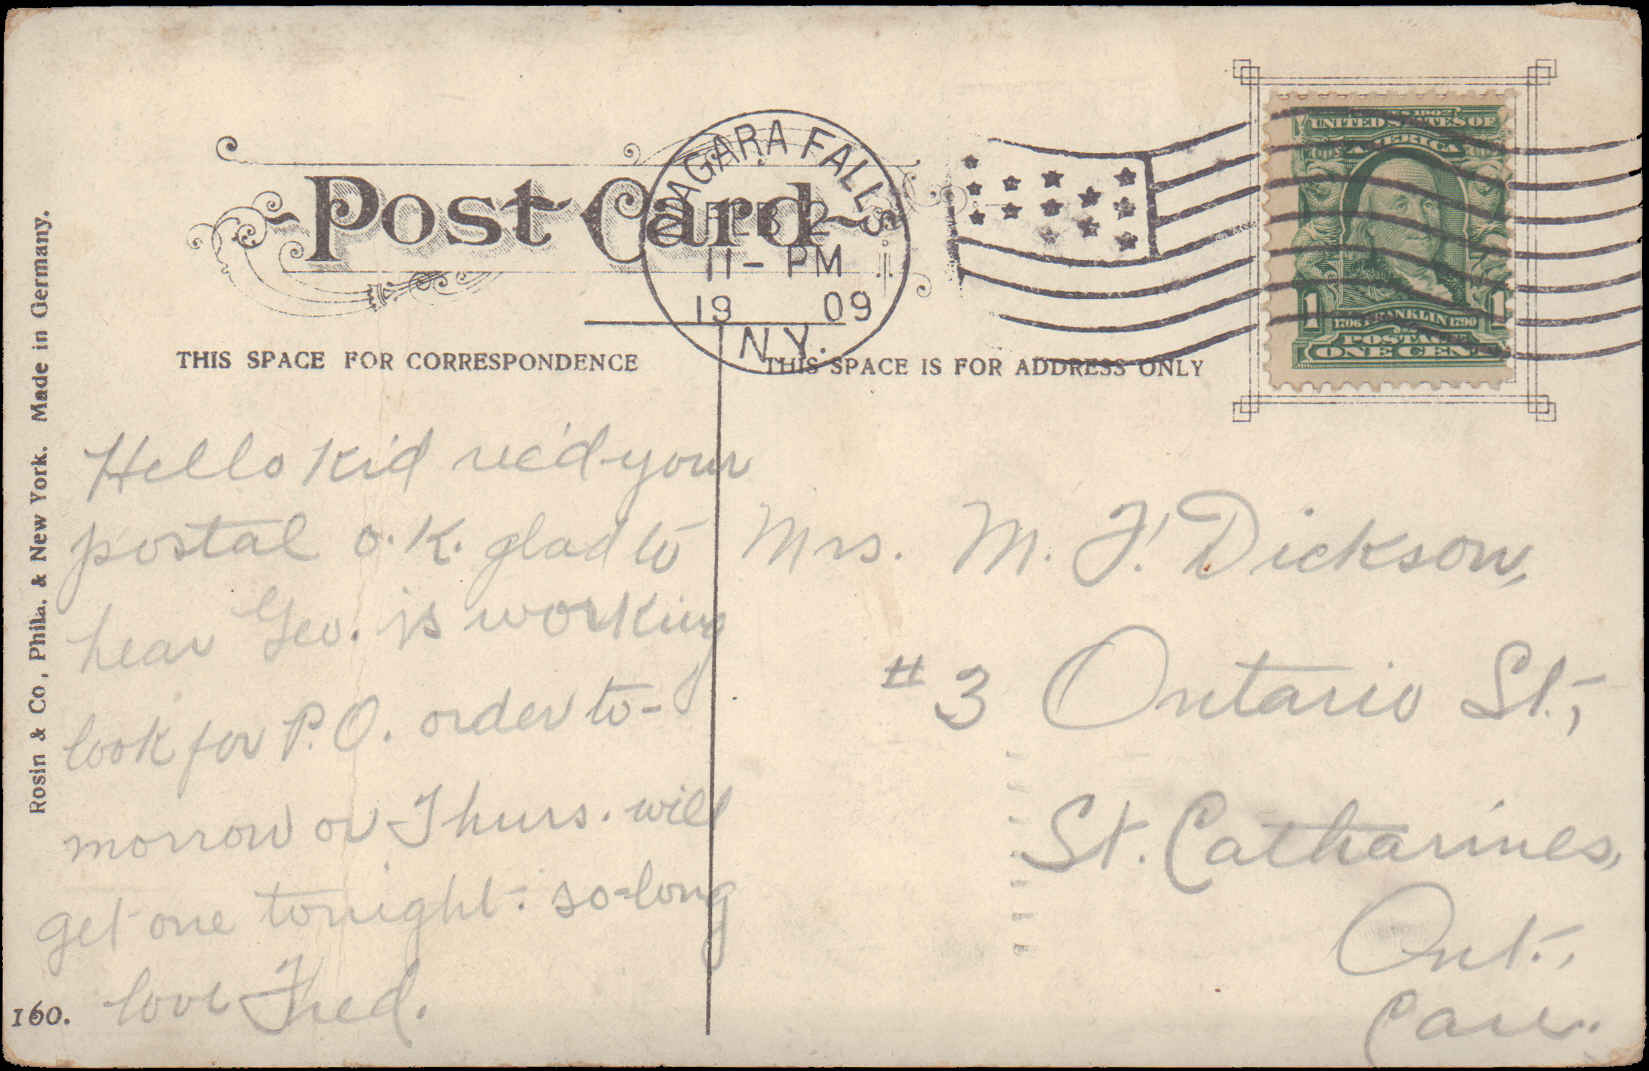 Post Card
NIAGARA FALLS
FEB 2
11- PM
19 09
N.Y.
UNITED STATES OF
AMERICA
1 1
1706 FRANKLIN 1790
POSTAGE
ONE CENT
THIS SPACE FOR CORRESPONDENCE
THIS SPACE IS FOR ADDRESS ONLY
Hello Kid rec'd your
postal o.K. glad to
hear Geo. is working
look for P.O. order to-
morrow or Thurs. will
get one tonight. so-long
love Fred.
Mrs. M. F. Dickson,
# 3 Ontario St.,
St. Catharines,
Ont.,
Can.
Rosin & Co, Phila. & New York. Made in Germany.
160.